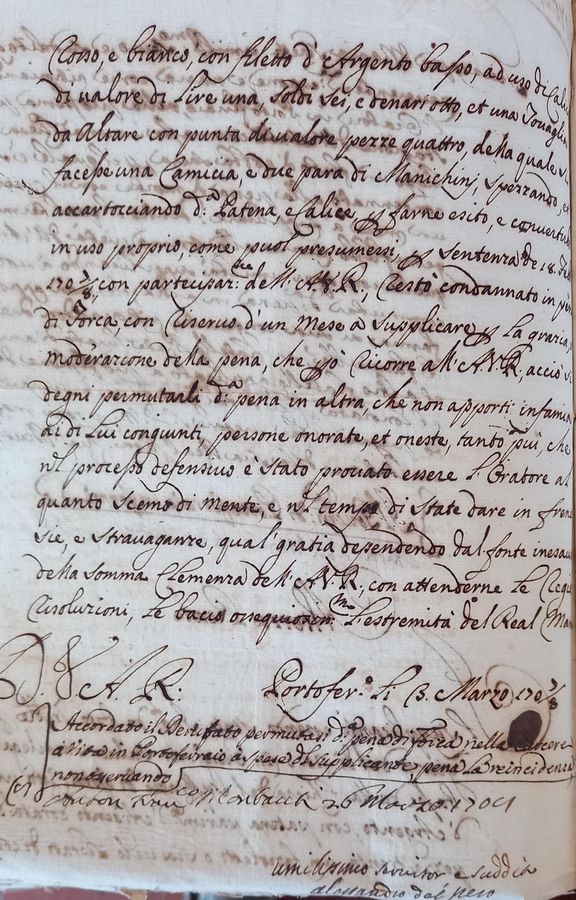 Rosso, e bianco, con filetto d'Argento basso, ad uso di Calic
di valore di Lire una, soldi sei, e denari otto, et una Tovaglia
da Altare con punta di valore pezze quattro, della quale si
facesse una Camicia, e due para di Manichini, spezzando, et
accartocciando d.ª Patena, e Calice, p farne esito, e convertirli
in uso proprio, come puol presumersi, p sentenza de 18. Feb
170 7/8, con partecipaz.ne dell'A.V.R., Restò condannato in pena
di Forca, con Riservo d'un Mese a supplicare p la grazia, o
moderazione della pena, che p ciò Ricorre all'A.V.R., acciò si
degni permutarli d.ª pena in altra, che non apporti infamia
ai di Lui congiunti, persone onorate, et oneste, tanto più, che
nel processo defensivo è stato provato essere l'Oratore al
quanto scemo di mente, e nel tempo di state dare in frene
sie, e stravaganze, qual gratia dependendo dal fonte inesau
della somma Clemenza dell'A.V.R., con attenderne le Regie
Risoluzioni, le bacio ossequiosam.te l'estremità del Real Man
D. V. A. R. Portofer.º li 3. Marzo 170 7/8
Accordato il Benefato permutasi d.ª pena di forca nella Carcere
a Vita in Portoferraio a spese del supplicante pena la reincidenza
non osservando
26 Marzo 170
umilissimo servitor e suddit
alessandro del